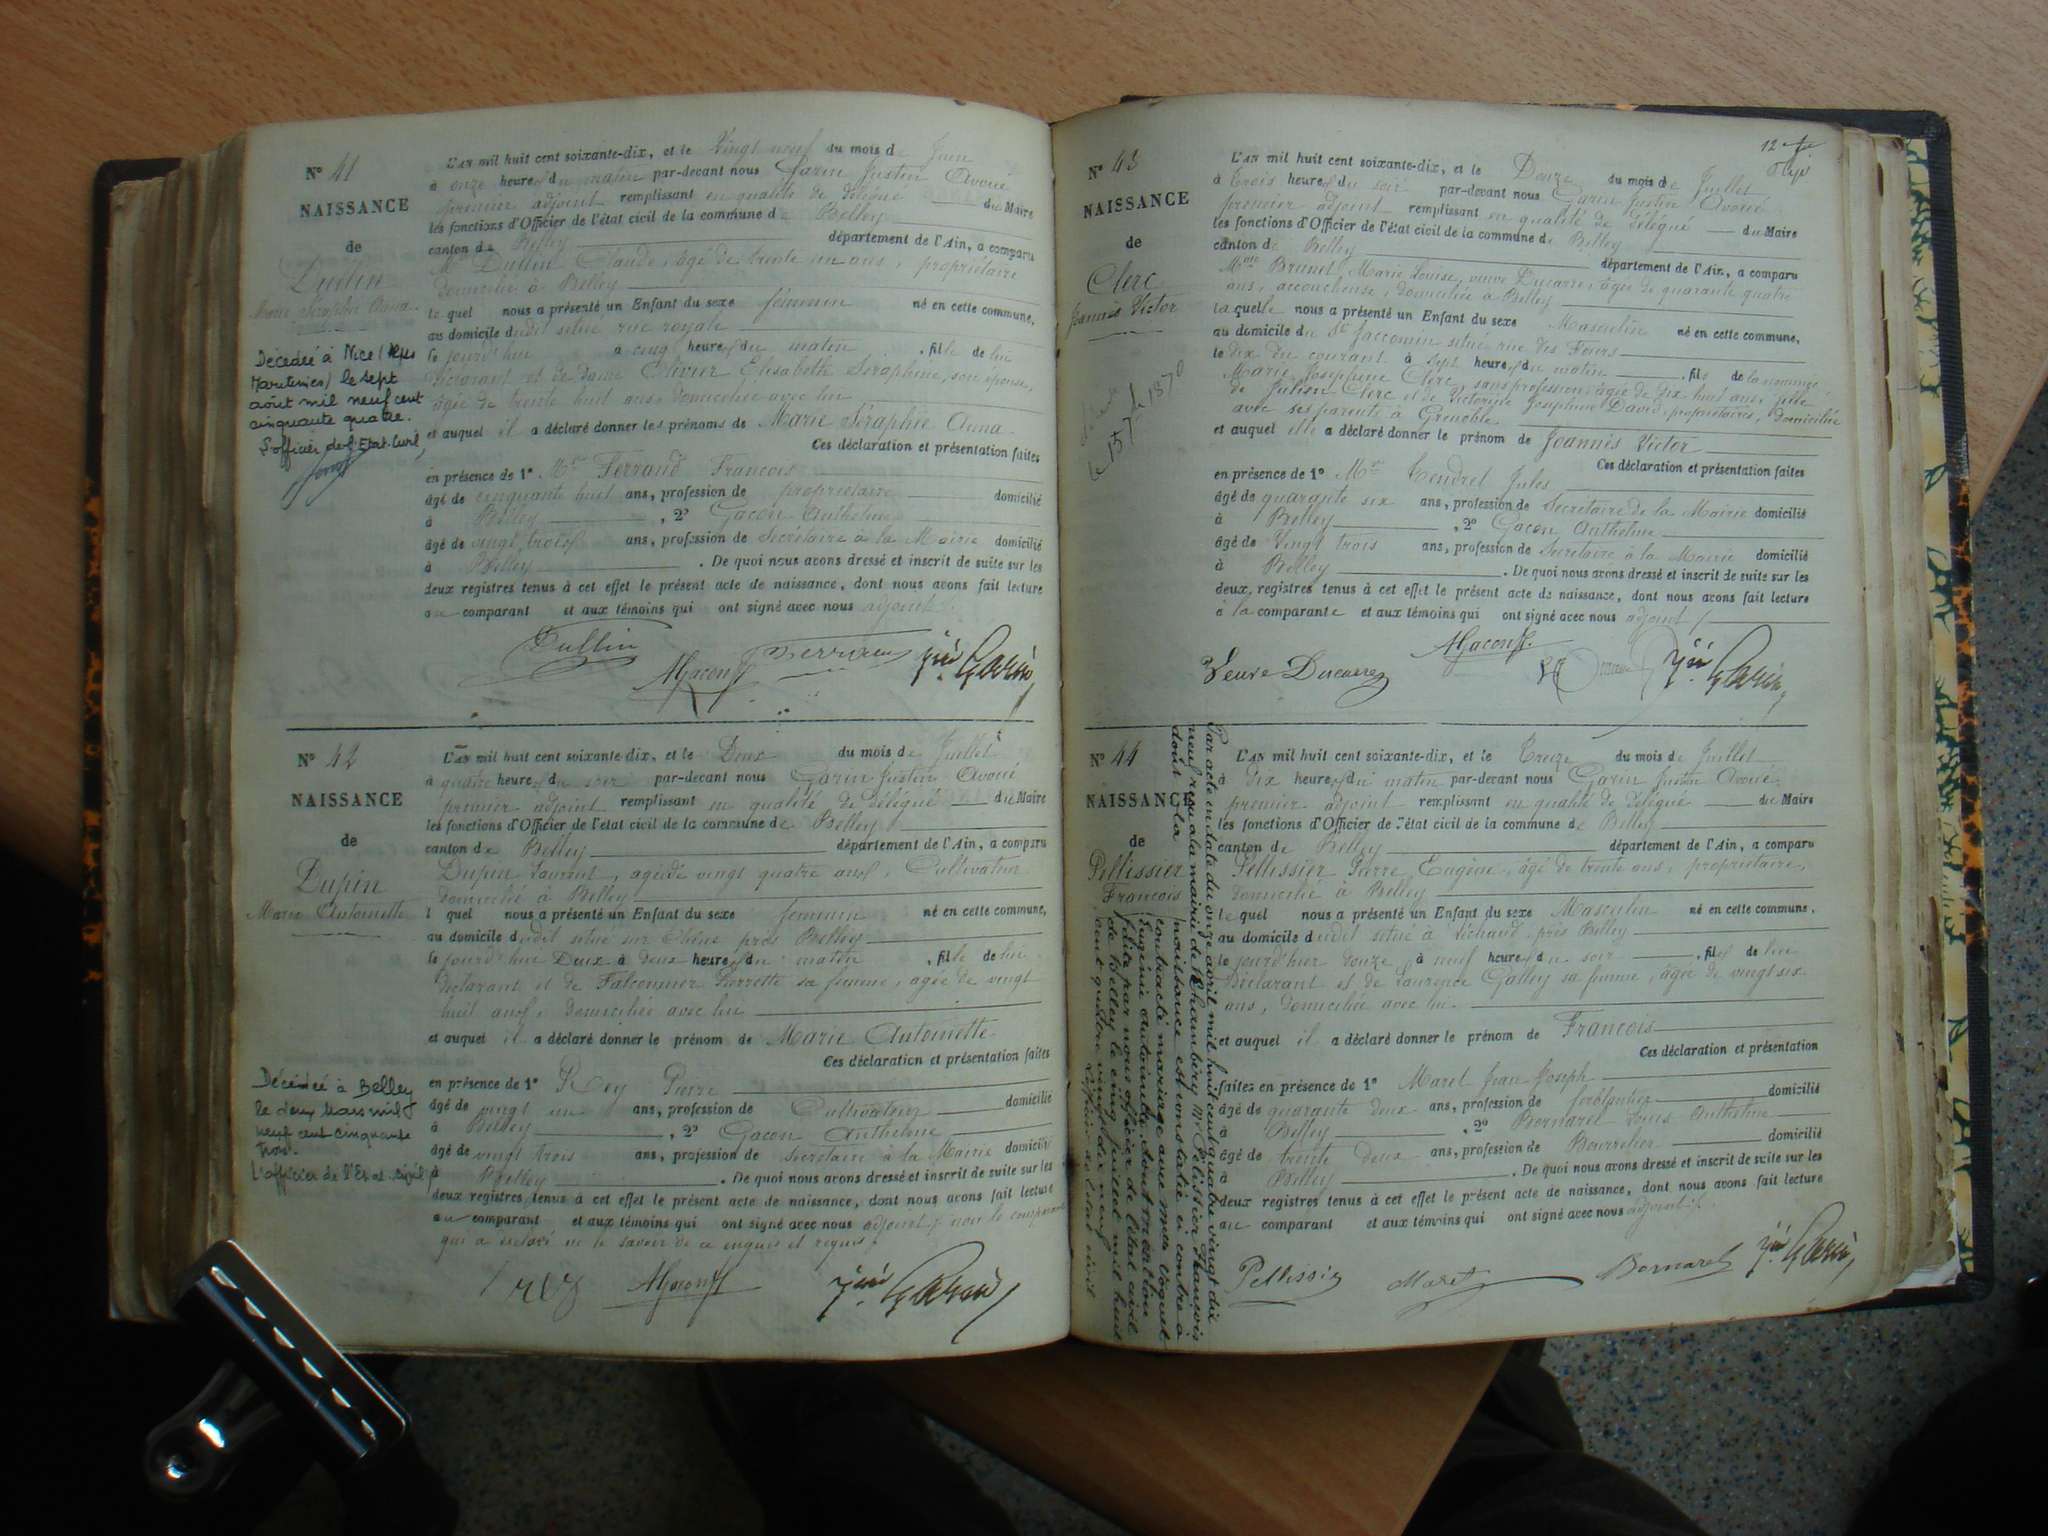 N° 41
NAISSANCE
de
Dullin
Marie Séraphie Anna
Décédée à Nice (Alpes
Maritimes) le sept
août mil neuf cent
cinquante quatre.
L'officier de l'Etat-Civil,
L'AN mil huit cent soixante-dix, et le Vingt neuf du mois de Juin
à onze heures du matin par-devant nous Garin Justin Avoué
premier adjoint remplissant en qualité de délégué du Maire
les fonctions d'Officier de l'état civil de la commune de Belley
canton de Belley département de l'Ain, a comparu
Mr Dullin Claude, âgé de trente un ans, propriétaire
domicilié à Belley
le quel nous a présenté un Enfant du sexe féminin né en cette commune,
au domicile dudit situé rue royale
le jourd'hui à cinq heures du matin, fille de lui
déclarant et de dame Olivier Elisabeth Séraphine, son épouse,
âgée de trente huit ans, domiciliée avec lui
et auquel il a déclaré donner les prénoms de Marie Séraphie Anna
Ces déclaration et présentation faites
en présence de 1° Mr Ferrand François
âgé de cinquante huit ans, profession de propriétaire domicilié
à Belley, 2° Gacon Anthelme
âgé de vingt trois ans, profession de Secrétaire à la Mairie domicilié
à Belley. De quoi nous avons dressé et inscrit de suite sur les
deux registres tenus à cet effet le présent acte de naissance, dont nous avons fait lecture
au comparant et aux témoins qui ont signé avec nous adjoint.
Dullin
AGacon
Ferrand
Jin Garin
N° 42
NAISSANCE
de
Dupin
Marie Antoinette
Décédée à Belley
le deux Mars mil
neuf cent cinquante
trois.
L'officier de l'Etat-civil,
L'AN mil huit cent soixante-dix, et le Deux du mois de Juillet
à quatre heures du soir par-devant nous Garin Justin Avoué
premier adjoint remplissant en qualité de délégué du Maire
les fonctions d'Officier de l'état civil de la commune de Belley
canton de Belley département de l'Ain, a comparu
Dupin Laurent, agé de vingt quatre ans, Cultivateur
domicilié à Belley
l quel nous a présenté un Enfant du sexe féminin né en cette commune,
au domicile dudit situé sur Chêne près Belley
le jourd'hui Deux à deux heures du matin, fille de lui
déclarant et de Falconnier Pierrette sa femme, agée de vingt
huit ans, domiciliée avec lui
et auquel il a déclaré donner le prénom de Marie Antoinette
Ces déclaration et présentation faites
en présence de 1° Rey Pierre
âgé de vingt un ans, profession de Cultivateur domicilié
à Belley, 2° Gacon Anthelme
âgé de vingt trois ans, profession de Secrétaire à la Mairie domicilié
à Belley. De quoi nous avons dressé et inscrit de suite sur les
deux registres tenus à cet effet le présent acte de naissance, dont nous avons fait lecture
au comparant et aux témoins qui ont signé avec nous adjoint, non le comparant
qui a déclaré ne le savoir de ce enquis et requis.
rey
AGacon
Jin Garin
12
N° 43
NAISSANCE
de
Clerc
Joannès Victor
le 15 7bre 1870
L'AN mil huit cent soixante-dix, et le Douze du mois de Juillet
à trois heures du soir par-devant nous Garin Justin Avoué
premier adjoint remplissant en qualité de délégué du Maire
les fonctions d'Officier de l'état civil de la commune de Belley
canton de Belley département de l'Ain, a comparu
Mme Brunet Marie Louise, veuve Ducarre, âgée de quarante quatre
ans, accoucheuse, domiciliée à Belley
laquelle nous a présenté un Enfant du sexe Masculin né en cette commune,
au domicile du Sr Jaccomin situé rue des Fours
le dix du courant à sept heures du matin, fils de la nommée
Marie Joséphine Clerc, sans profession, âgée de dix huit ans, fille
de Julien Clerc et de Victorine Joséphine David, propriétaires, domiciliée
avec ses parents à Grenoble
et auquel elle a déclaré donner le prénom de Joannès Victor
Ces déclaration et présentation faites
en présence de 1° Mr Tendret Jules
âgé de quarante six ans, profession de Secrétaire de la Mairie domicilié
à Belley, 2° Gacon Anthelme
âgé de Vingt trois ans, profession de Secrétaire à la Mairie domicilié
à Belley. De quoi nous avons dressé et inscrit de suite sur les
deux registres tenus à cet effet le présent acte de naissance, dont nous avons fait lecture
à la comparante et aux témoins qui ont signé avec nous adjoint
AGacon
Veuve Ducarre
Jin Garin
N° 44
NAISSANCE
de
Pellissier
François
Par acte en date du onze avril mil huit cent quatre vingt dix
neuf reçu à la mairie de Chambéry Mr Pélissier François
dont la naissance est constatée ci contre à
contracté mariage avec Mlle Voguet
Eugénie Antoinette, dont mention
faite par nous officier de l'état civil
de Belley le cinq juillet mil huit
cent quatre vingt dix neuf
L'officier de l'état civil
L'AN mil huit cent soixante-dix, et le Treize du mois de Juillet
à Dix heures du matin par-devant nous Garin Justin Avoué
premier adjoint remplissant en qualité de délégué du Maire
les fonctions d'Officier de l'état civil de la commune de Belley
canton de Belley département de l'Ain, a comparu
Pellissier Pierre Eugène, âgé de trente ans, propriétaire,
domicilié à Belley
le quel nous a présenté un Enfant du sexe Masculin né en cette commune,
au domicile dudit situé à Lichaud près Belley
le jourd'hier douze à neuf heures du soir, fils de lui
Déclarant et de Laurence Galley sa femme, âgée de vingt six
ans, domiciliée avec lui
et auquel il a déclaré donner le prénom de François
Ces déclaration et présentation
faites en présence de 1° Maret Jean Joseph
âgé de quarante deux ans, profession de ferblantier domicilié
à Belley, 2° Bernarel Louis Anthelme
âgé de trente deux ans, profession de Bourrelier domicilié
à Belley. De quoi nous avons dressé et inscrit de suite sur les
deux registres tenus à cet effet le présent acte de naissance, dont nous avons fait lecture
au comparant et aux témoins qui ont signé avec nous adjoint.
Pellissier
Maret
Bernarel
Jin Garin